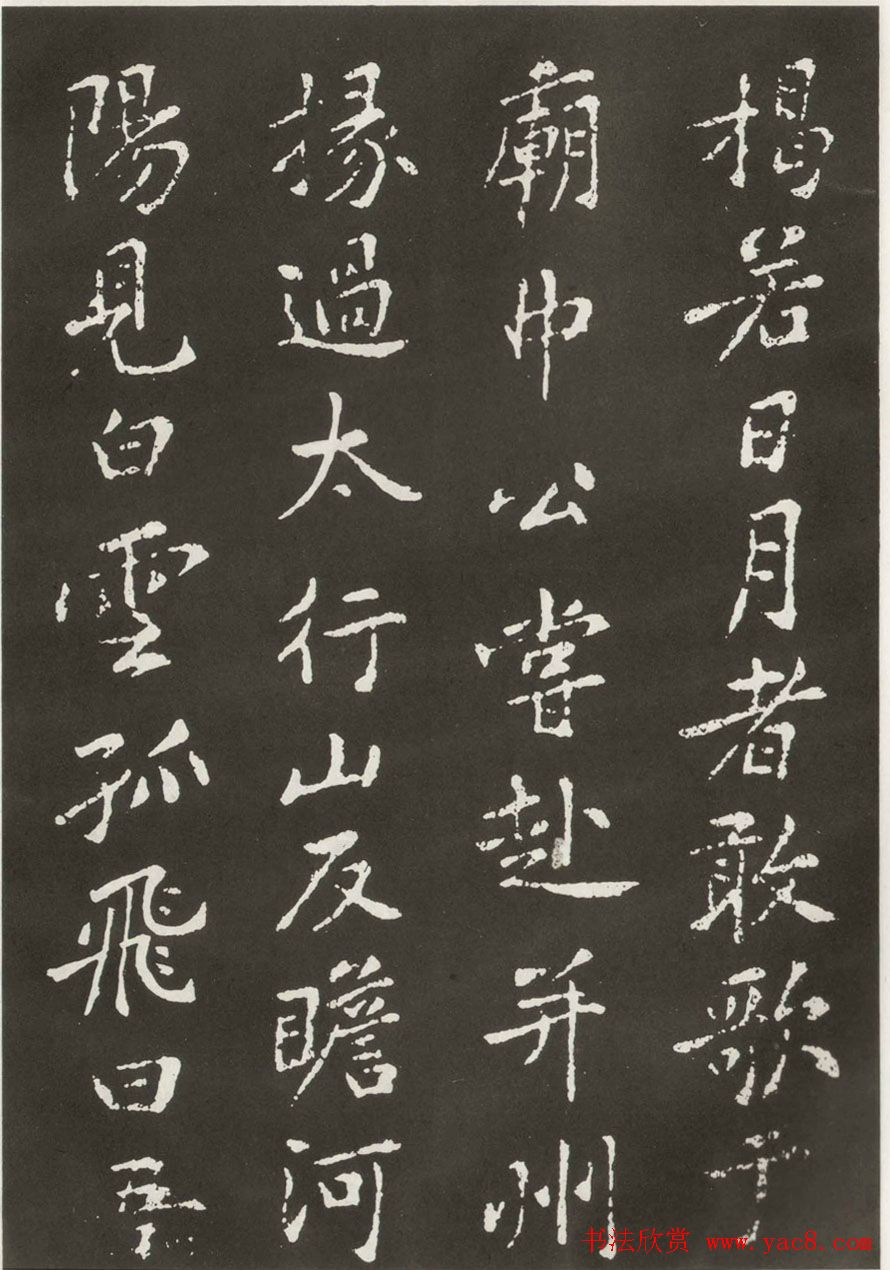 揭若日月者敢歌于
廟中公嘗赴并州
掾過太行山反瞻河
陽見白雲孤飛曰吾
书法欣赏 www.yac8.com